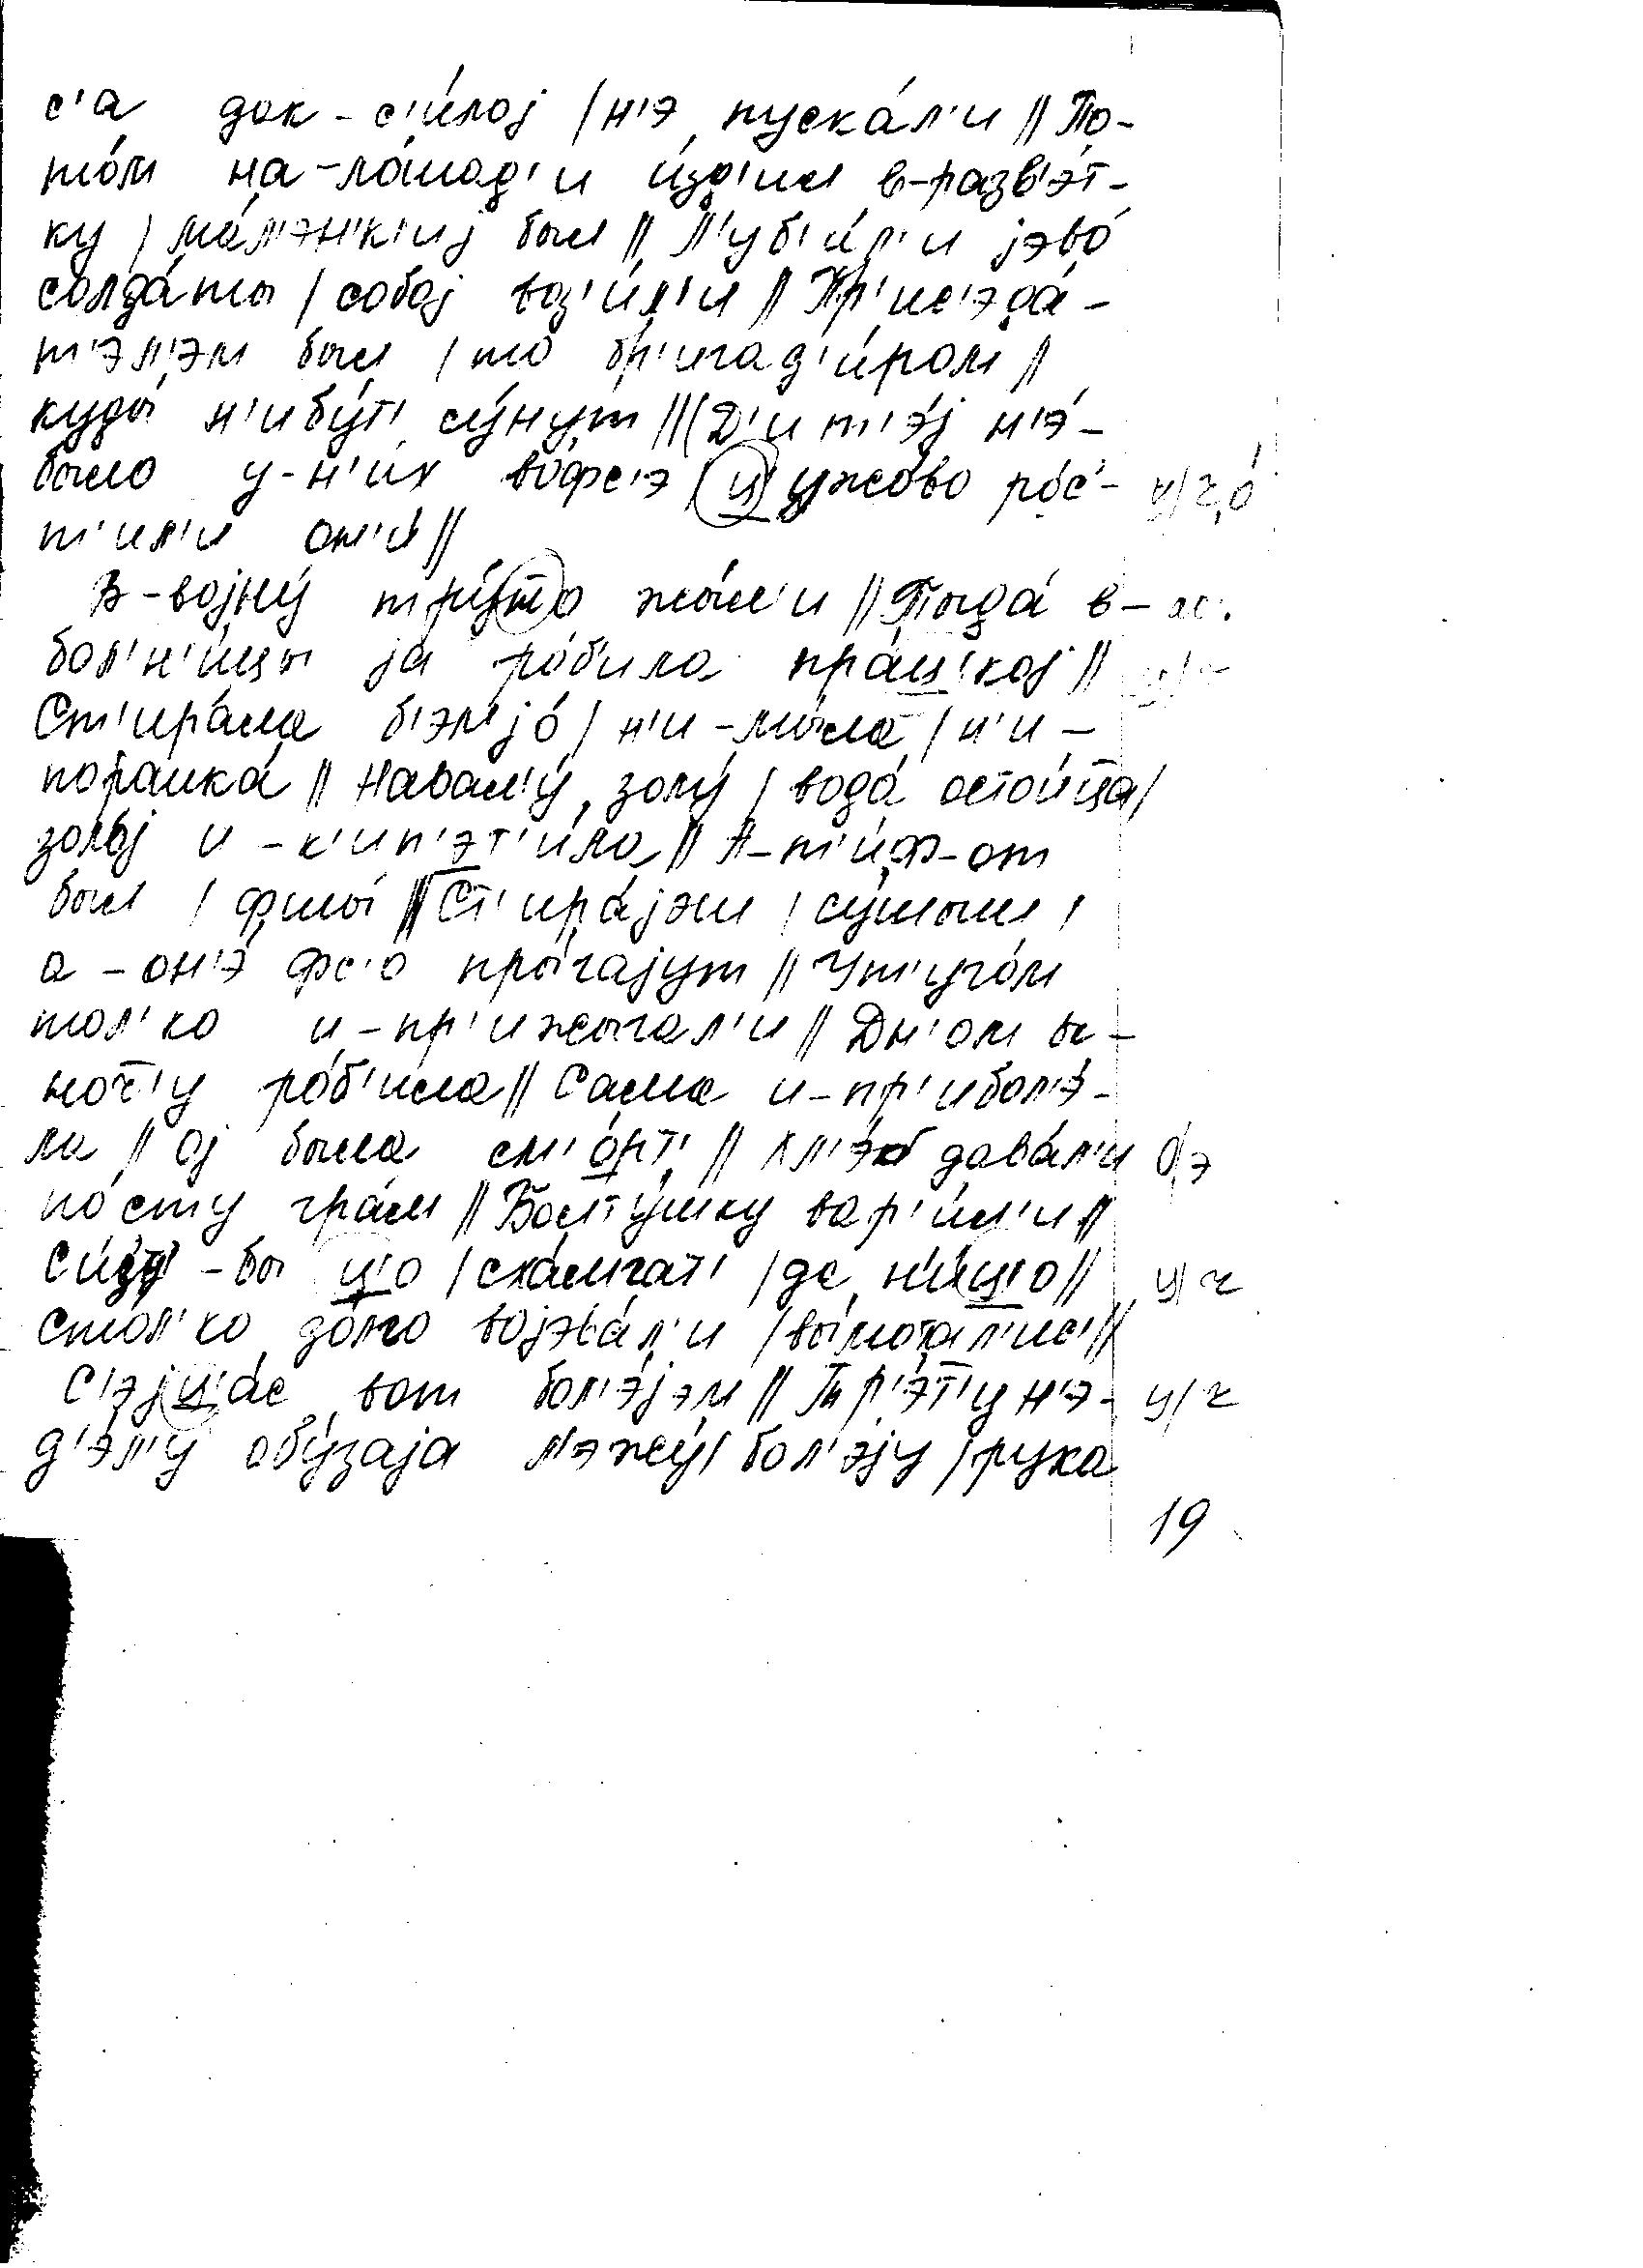 с'а док-с'и́лој / н'э пуска́л'и // По-
то́м на-ло́шад'и и́зд'ил в-разв'э́т-
ку / ма́л'эн'к'иј был // Л'уб'и́л'и јэво́
солда́ты / собој воз'и́л'и // Пр'ис'эда́-
т'эл'эм был / то бр'игад'и́ром //
куды́ н'ибу́т' су́нут // Д'ит'э́ј н'э́-
было у-н'и́х во́фс'э / ц ужо́во ро́с'- ц/ч,о́
т'ил'и он'и́ //
В-војну́ тру́тно жы́л'и // Тогда́ в-
бол'н'и́цы ја ро́била пра́ц'кој //
Ст'ира́ла б'эл'јо́ / н'и-мы́ла / н'и-
порашка́ // Навал'у́ золу́ / вода́ осто́ица /
золој и-к'ип'эт'и́ла // А-т'и́ф-от
был / фшы́ // Ст'ира́јэш / су́шыш /
а-он'э́ фс'о пры́гајут // Ут'уго́м
тол'ко и-пр'ижыгал'и // Дн'ом ы-
ноч'у ро́б'ила // Сама и-пр'ибол'э́-
ла // Ој была см'о́рт' // Хл'э́б дава́л'и о́/э
по́ сту гра́м // Болту́шку вар'и́л'и //
-бы ц'о / сха́мкат' / дс н'иц'о // ц/ч
стол'ко до́лго војэва́л'и / вы́мотал'ис' //
С'эјц'а́с вот бол'э́јэм // Тр'э́т'у н'э- ц/ч
д'э́л'у обу́заја л'эжу́ / бол'э́ју / рука
19